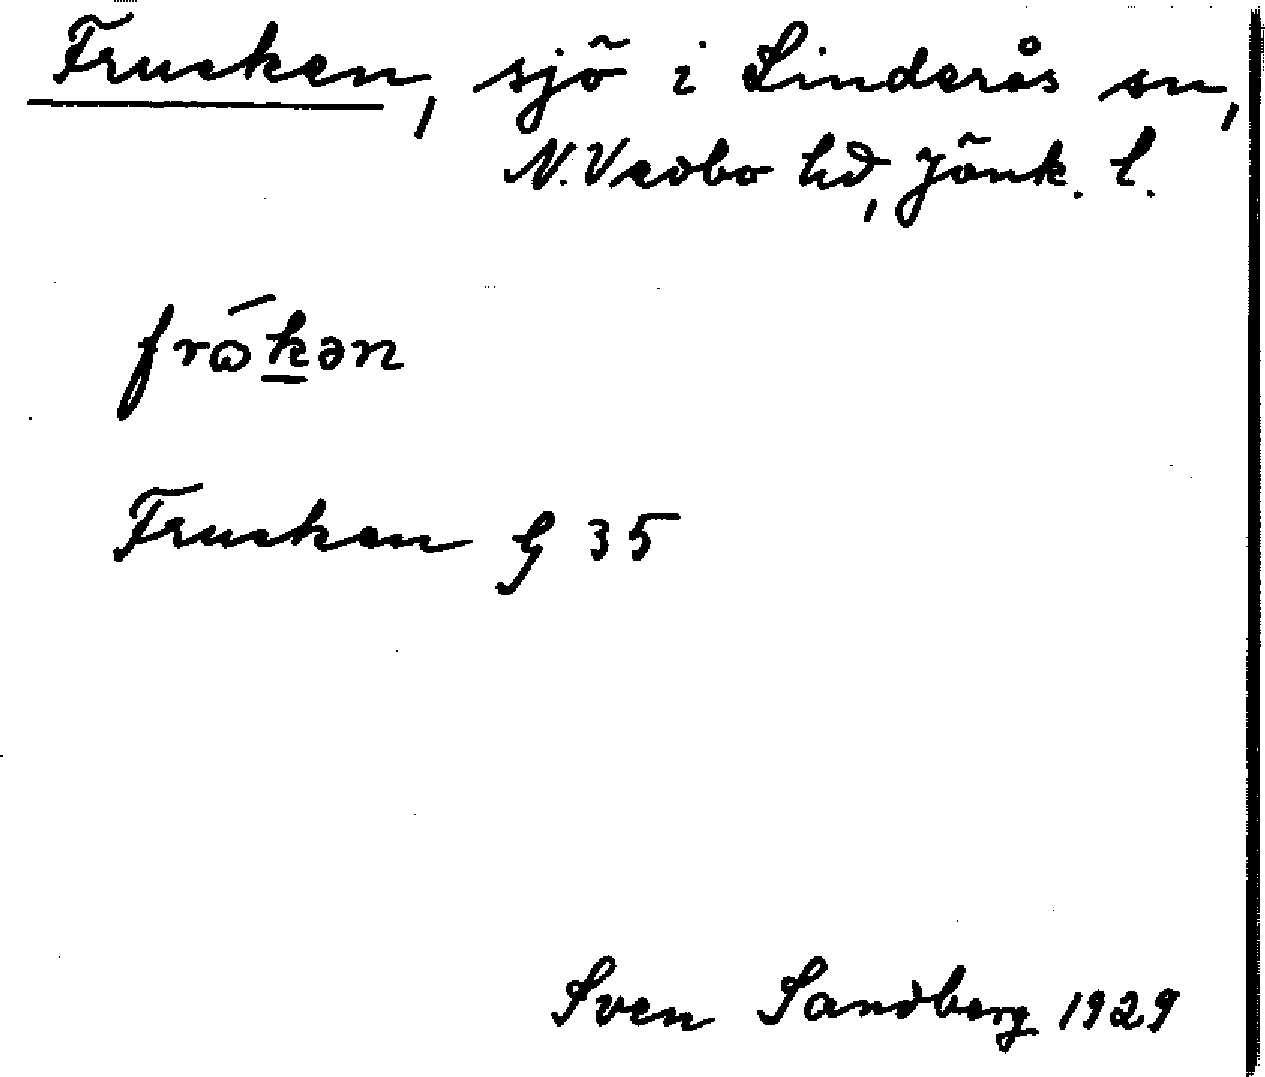 Frucken, sjö i Linderås sn,
N. Vedbo hd, Jönk. l.
frω̄́k̠ən
Frucken G 35
Sven Sandberg 1929